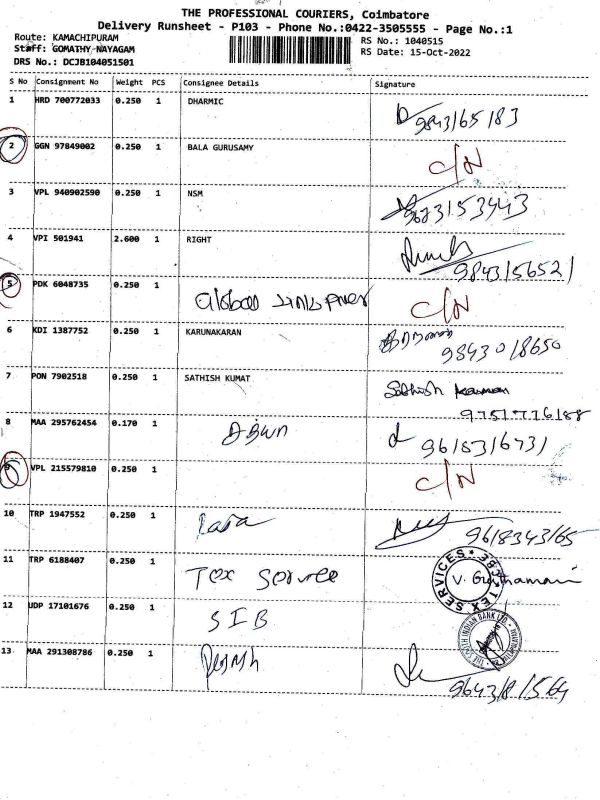 THE PROFESSIONAL COURIERS, Coimbatore
Delivery Runsheet - P103 - Phone No.:0422-3505555 - Page No.:1
Route: KAMACHIPURAM
RS No.: 1040515
Staff: GOMATHY NAYAGAM
RS Date: 15-Oct-2022
DRS No.: DCJB104051501
S No Consignment No Weight PCS Consignee Details Signature
1 HRD 700772033 0.250 1 DHARMIC
9843165183
2 GGN 97849002 0.250 1 BALA GURUSAMY C/N
3 VPL 940902590 0.250 1 NSM
4 VPI 501941 2.600 1 RIGHT
9843156521
5 PDK 6048735 0.250 1 Global C/N
6 KDI 1387752 0.250 1 KARUNAKARAN
9843018650
7 PON 7902518 0.250 1 SATHISH KUMAT Sathish Kumar
9751776188
8 MAA 295762454 0.170 1
9618316731
9 VPL 215579810 0.250 1 C/N
10 TRP 1947552 0.250 1 9618343165
11 TRP 6188407 0.250 1 Tex
TEX SERVICES
12 UDP 17101676 0.250 1 SIB
THE SOUTH INDIAN BANK LTD.
13 MAA 291308786 0.250 1
9643181564